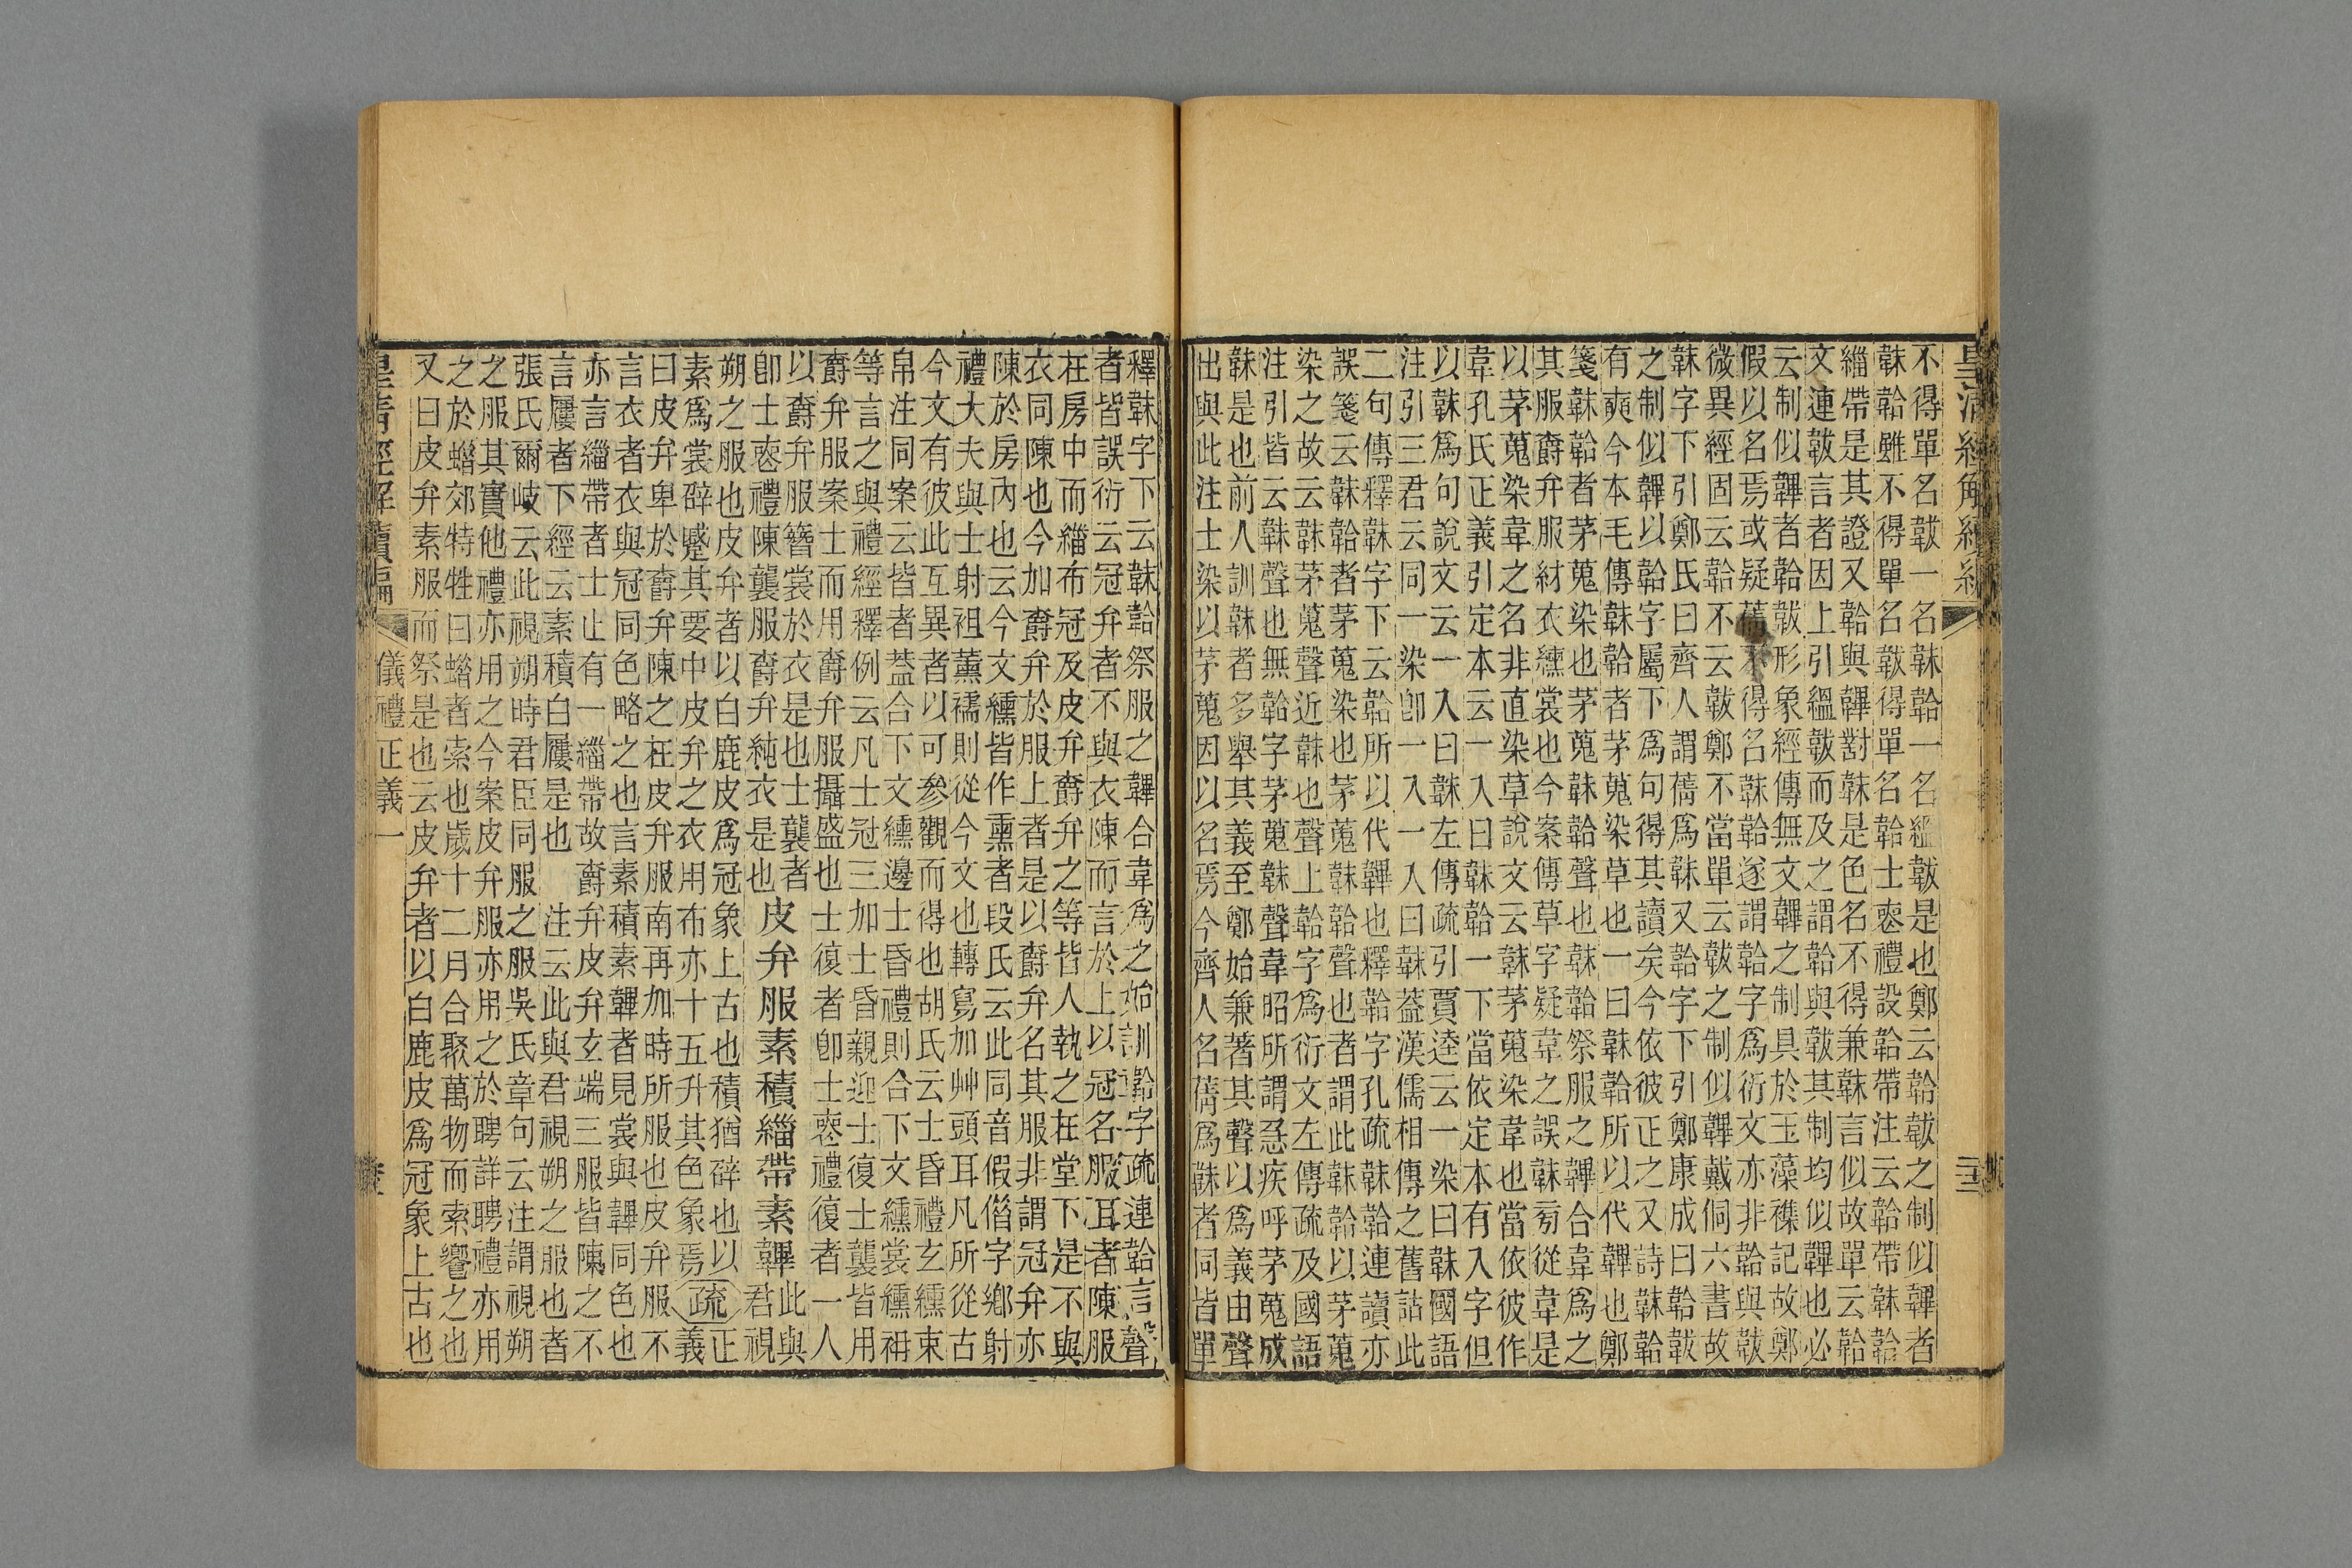 不得單名韍一名韎韐一名縕韍是也鄭云韐韍之制似韠者
韎韐雖不得單名韍得單名韐士喪禮設韐帶注云韐帶韎韐
緇帶是其證又韐與韠對韎是色名不得兼韎言似故單云韐
文連韍言者因上引縕韍而及之謂韐與韍其制均似韠也必
云制似韠者韐韍形象經傳無文韠之制具於玉藻襍記故鄭
假以名焉或疑舊不得名韎韐遂謂韐字爲衍文亦非韐與韍
微異經固云韐不云韍鄭不當單云韍之制似韠戴侗六書故
韎字下引鄭氏曰齊人謂蒨爲韎又韐字下引鄭康成曰韐韍
之制似韠以韐字屬下爲句得其讀矣今依彼正之又詩韎韐
有奭今本毛傳韎韐者茅蒐染草也一曰韎韐所以代韠也鄭
箋韎韐者茅蒐染也茅蒐韎韐聲也韎韐祭服之韠合韋爲之
其服爵弁服紂衣纁裳也今案傳草字疑韋之誤韎㫄從韋是
以茅蒐染韋之名非直染草說文云韎茅蒐染韋也當依彼作
韋孔氏正義引定本云一入曰韎韐一下當依定本有入字但
以韎爲句說文云一入曰韎左傳疏引賈逵云一染曰韎國語
注引三君云同一染卽一入一入曰韎蓋漢儒相傳之舊詁此
二句傳釋韎字下云韐所以代韠也釋韐字孔疏韎韐連讀亦
誤箋云韎韐者茅蒐染也茅蒐韎韐聲也者謂此韎韐以茅蒐
染之故云韎茅蒐聲近韎也聲上韐字爲衍文左傳疏及國語
注引皆云韎聲也無韐字茅蒐韎聲韋昭所謂急疾呼茅蒐成
韎是也前人訓韎者多舉其義至鄭始兼著其聲以爲義由聲
出與此注士染以茅蒐因以名焉今齊人名蒨爲韎者同皆單
釋韎字下云韎韐祭服之韠合韋爲之始訓韐字疏連韐言聲
者皆誤衍云冠弁者不與衣陳而言於上以冠名服耳者陳服
在房中而緇布冠及皮弁爵弁之等皆人執之在堂下是不與
衣同陳也今加爵弁於服上者是以爵弁名其服非謂冠弁亦
陳於房內也云今文纁皆作熏者段氏云此同音假借字鄉射
禮大夫與士射袒薰襦則從今文也轉寫加艸頭耳凡所從古
今文有彼此互異者以可參觀而得也胡氏云士昏禮玄纁束
帛注同案云皆者蓋合下文纁邊士昏禮則合下文纁裳纁袡
等言之與禮經釋例云凡士冠三加士昏親迎士復士襲皆用
爵弁服案士而用爵弁服攝盛也士復者卽士喪禮復者一人
以爵弁服簪裳於衣是也士襲者此與
卽士喪禮陳襲服爵弁純衣是也皮弁服素積緇帶素韠君視
朔之服也皮弁者以白鹿皮爲冠象上古也積猶辟也以疏正
素爲裳辟蹙其要中皮弁之衣用布亦十五升其色象焉義
曰皮弁卑於爵弁陳之在皮弁服南再加時所服也皮弁服不
言衣者衣與冠同色略之也言素積素韠者見裳與韠同色也
亦言緇帶者士止有一緇帶故爵弁皮弁玄端三服皆陳之不
言屨者下經云素積白屨是也 注云此與君視朔之服也者
張氏爾岐云此視朔時君臣同服之服吳氏章句云注謂視朔
之服其實他禮亦用之今案皮弁服亦用之於聘詳聘禮亦用
之於蜡郊特牲曰蜡者索也歲十二月合聚萬物而索饗之也
又曰皮弁素服而祭是也云皮弁者以白鹿皮爲冠象上古也
皇清經解續編 儀禮正義一